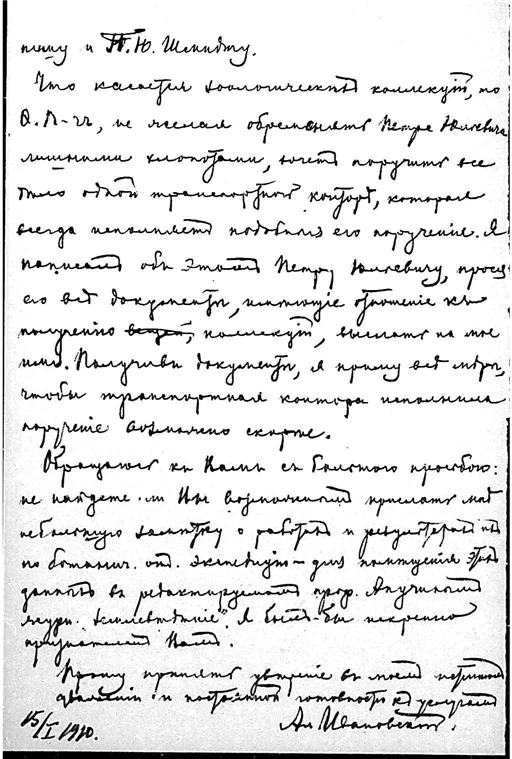 и П. Ю. Шмидту.
Что касается зоологическихъ коллекцій, то
Ѳ. П-чъ, не желая обременять Петра Юльевича
лишними хлопотами, хочетъ поручить все
дѣло одной транспортной конторѣ, которая
всегда исполняетъ подобныя его порученія. Я
написалъ объ этомъ Петру Юльевичу, прося
его всѣ документы, имѣющіе отношеніе къ
полученію вещей, коллекцій, выслать на мое
имя. Получивъ документы, я приму всѣ мѣры,
чтобы транспортная контора исполнила
порученіе возможно скорѣе.
Обращаюсь къ Вамъ съ большою просьбою:
не найдете-ли Вы возможнымъ прислать мнѣ
небольшую замѣтку о работахъ и результатахъ
по ботанич. отд. экспедиціи – для помѣщенія этихъ
данныхъ въ редактируемомъ проф. Анучинымъ
журн. „Землевѣдѣніе“. Я былъ-бы искренно
признателенъ Вамъ.
Прошу принять увѣреніе въ моемъ истинномъ
уваженіи и постоянной готовности къ услугамъ
Ал. Ивановскій.
15/I 1910.